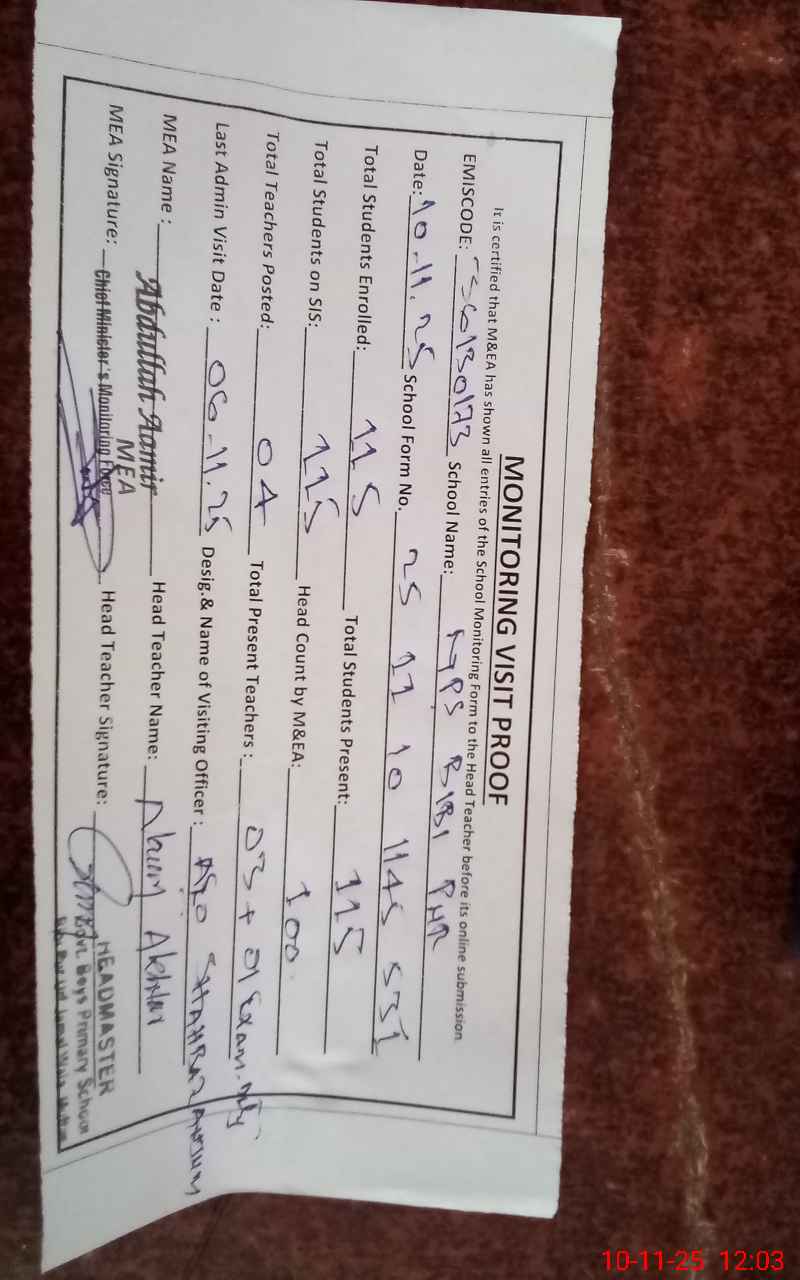 MONITORING VISIT PROOF
It is certified that M&EA has shown all entries of the School Monitoring Form to the Head Teacher before its online submission
EMISCODE: School Name: PS BIBI PUR
Date: 10-11.25 School Form No. 25 11 10 1145 531
Total Students Enrolled: 115 Total Students Present: 115
Total Students on SIS: 115 Head Count by M&EA: 100
Total Teachers Posted: 04 Total Present Teachers : 03 + 01 Exam.
Last Admin Visit Date : 06-11.25 Desig.& Name of Visiting Officer :
MEA Name : Abdullah Aamir Head Teacher Name: Akhtar
MEA
MEA Signature: Chief Minister's Monitoring Force Head Teacher Signature:
HEADMASTER
Govt. Boys Primary School
10-11-25 12:03